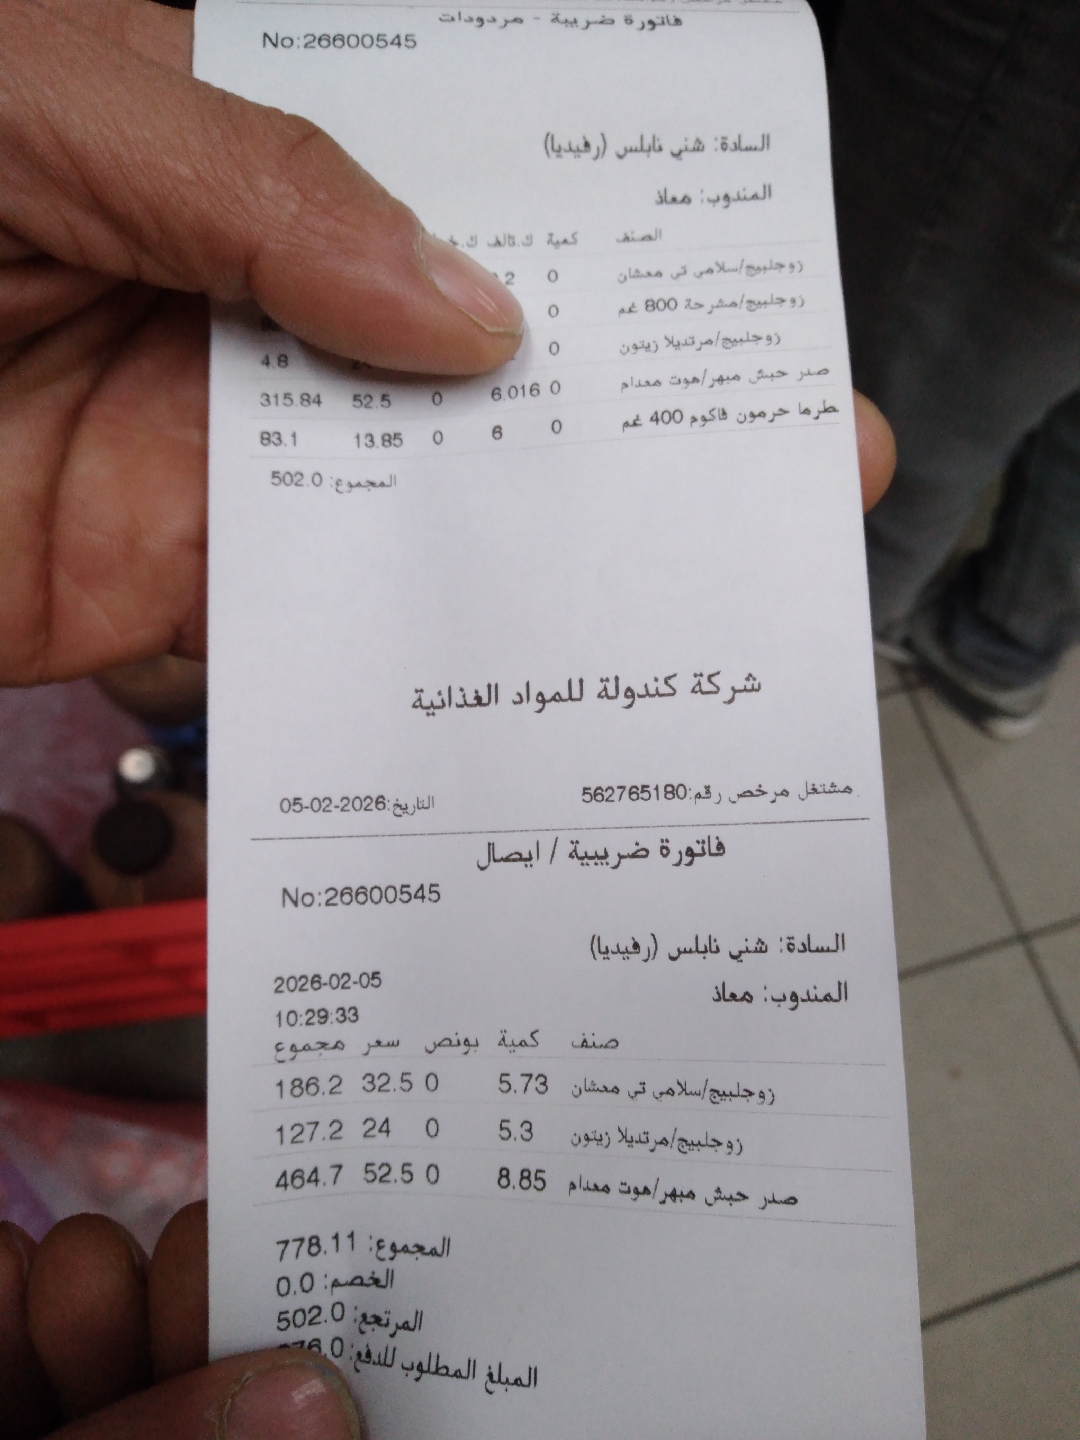 فاتورة ضريبة - مردودات
No:26600545
السادة: شني نابلس (رفيديا)
المندوب: معاذ
الصنف كمية ك.تالف
زوجلبيج/سلامي تي معشان 0
زوجلبيج/مشرحة 800 غم 0
زوجلبيج/مرتديلا زيتون 0 4.8
صدر حبش مبهر/هوت معدام 0 6.016 0 52.5 315.84
طرما حرمون فاكوم 400 غم 0 6 0 13.85 83.1
المجموع: 502.0
شركة كندولة للمواد الغذائية
مشتغل مرخص رقم:562765180 التاريخ:05-02-2026
فاتورة ضريبية / ايصال
No:26600545
السادة: شني نابلس (رفيديا)
2026-02-05
المندوب: معاذ
10:29:33
صنف كمية بونص سعر مجموع
زوجلبيج/سلامي تي معشان 5.73 0 32.5 186.2
زوجلبيج/مرتديلا زيتون 5.3 0 24 127.2
صدر حبش مبهر/هوت معدام 8.85 0 52.5 464.7
المجموع: 778.11
الخصم: 0.0
المرتجع: 502.0
المبلغ المطلوب للدفع: